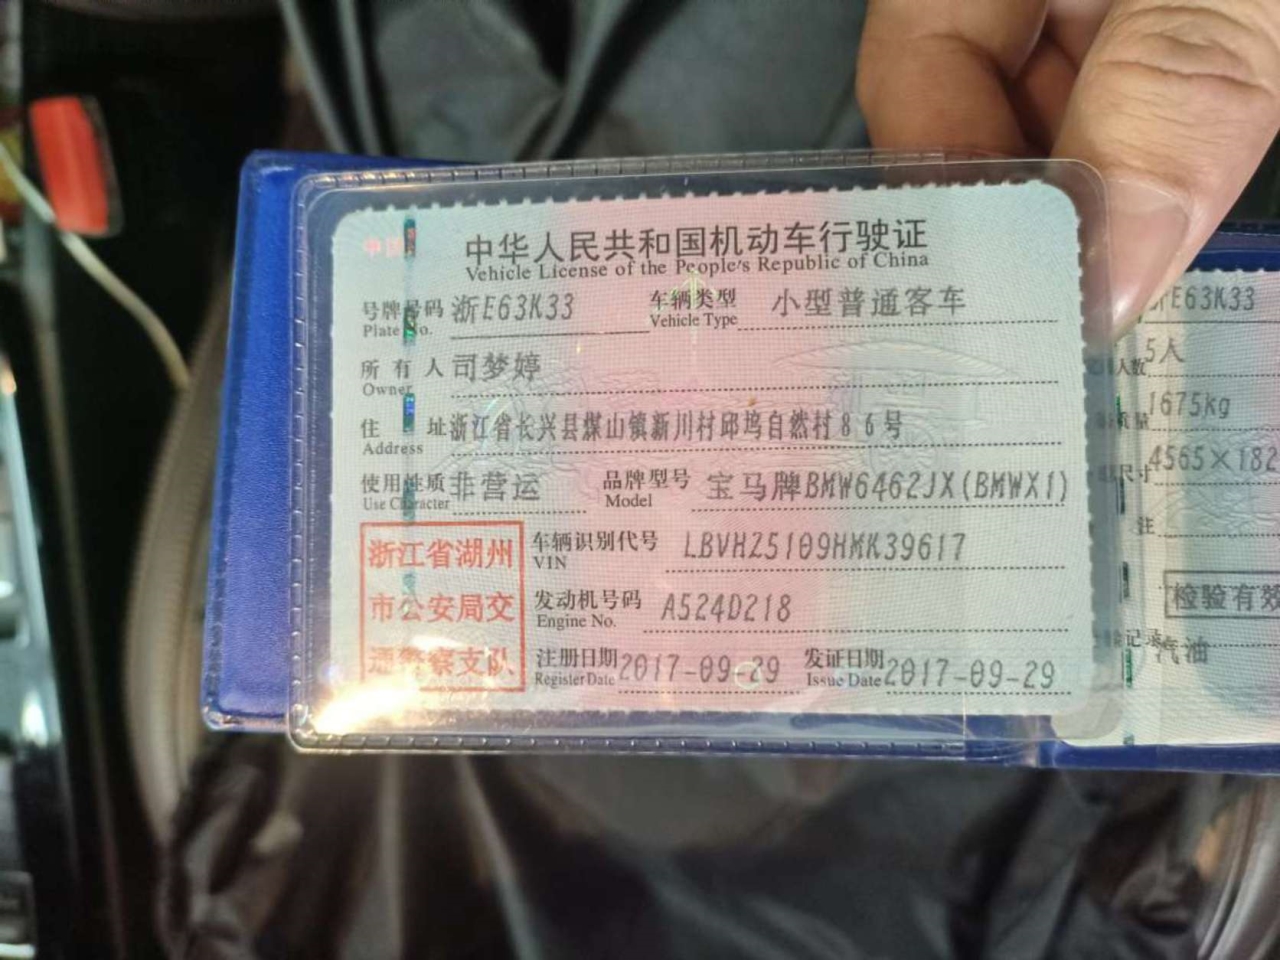 中国
中华人民共和国机动车行驶证
Vehicle License of the People's Republic of China
号牌号码 浙E63K33 车辆类型 小型普通客车
Plate No. Vehicle Type
所有人 司梦婷
Owner
住址 浙江省长兴县煤山镇新川村邱坞自然村86号
Address
使用性质 非营运 品牌型号 宝马牌BMW6462JX(BMWX1)
Use Character Model
浙江省湖州
市公安局交
通警察支队
车辆识别代号 LBVHZ5109HMK39617
VIN
发动机号码 A524D218
Engine No.
注册日期 2017-09-29 发证日期 2017-09-29
Register Date Issue Date
浙E63K33
人数 5人
质量 1675kg
尺寸 4565×182
注
检验有效
记录 汽油